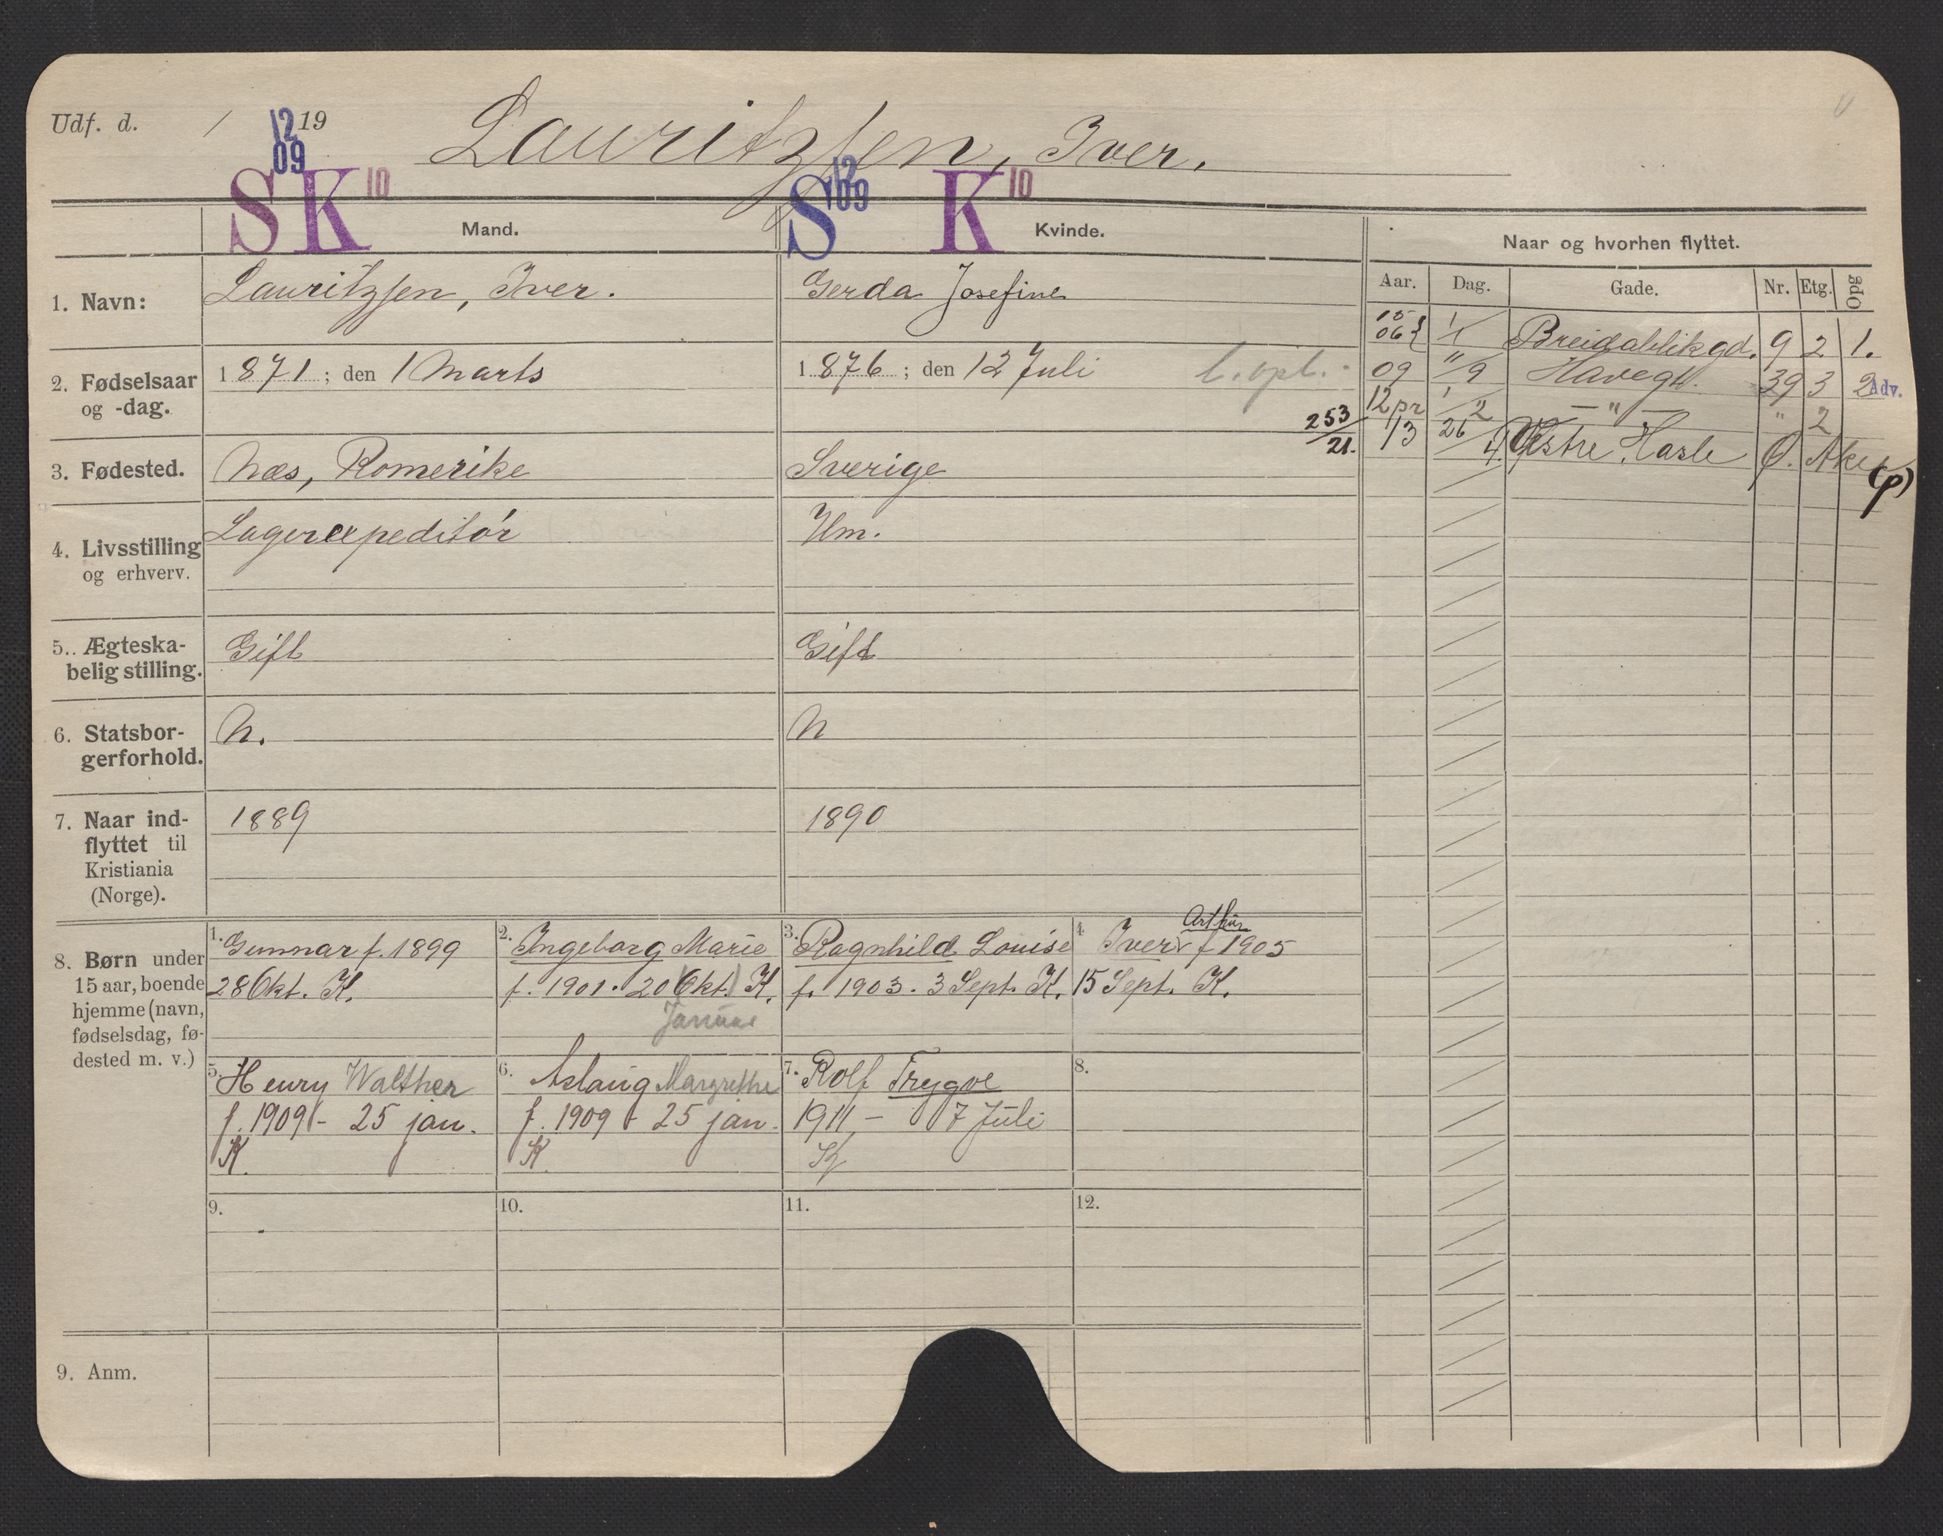 Udf. d. / 19 Lauritzsen, Iver.
12
09
S K 10
12
09
S K 10
Mand. Kvinde. Naar og hvorhen flyttet.
Aar. Dag. Gade. Nr. Etg. Opg
1. Navn: Lauritzsen, Iver. Gerda Josefine
2. Fødselsaar
og -dag.
1871; den 1 Marts
1876; den 12 Juli
3. Fødested. Næs, Romerike Sverige
4. Livsstilling
og erhverv.
Lagerexpeditør Hm.
5.. Ægteska-
belig stilling.
Gift Gift
6. Statsbor-
gerforhold.
N. N
7. Naar ind-
flyttet til
Kristiania
(Norge).
1889 1890
05
06 } 1/1 Breidablikgd. 9 2 1.
09 "/9 Havegd. 39 3 2 Adv.
12 pr 1/2 — " — " 2
253/21. 13 26/4 Vestre Hasle Ø. Aker (p)
8. Børn under
15 aar, boende
hjemme (navn,
fødselsdag, fø-
dested m. v.)
1. Gunnar f. 1899
28 Okt. K.
2. Ingeborg Marie
f. 1901. 20 (Okt.) K.
Januar
3. Ragnhild Louise
f. 1903. 3 Sept. K.
4 Iver Arthur f 1905
15 Sept. K.
5. Henry Walther
f. 1909 - 25 jan.
K.
6. Aslaug Margrethe
f. 1909 - 25 jan.
K
7. Rolf Trygve
1911 - 7 Juli
K
8.
9.
10.
11.
12.
9. Anm.